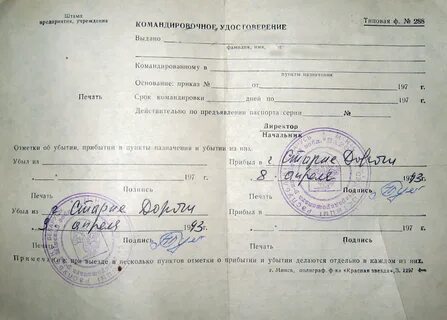 Штамп
предприятия, учреждения
Типовая ф. № 288
КОМАНДИРОВОЧНОЕ УДОСТОВЕРЕНИЕ
Выдано
фамилия, имя,
Командированному в
пункты назначения
Основание: приказ № от 197 г.
Печать Срок командировки дней по 197 г.
Действительно по предъявлении паспорта серии №
Директор
Начальник
Отметки об убытии, прибытии в пункты назначения и убытии из них.
Убыл из Прибыл в г Старые Дороги
197 г. 8 апреля 1993 г.
Печать Подпись Печать Подпись
Убыл из г. Старые Дороги Убыл из
9 апреля 1993 г. 197 г.
Печать Подпись Печать Подпись
Примечание: при выезде в несколько пунктов отметки о прибытии и убытии делаются отдельно в каждом из них.
г. Минск, полиграф. ф-ка «Красная звезда», З. 2297